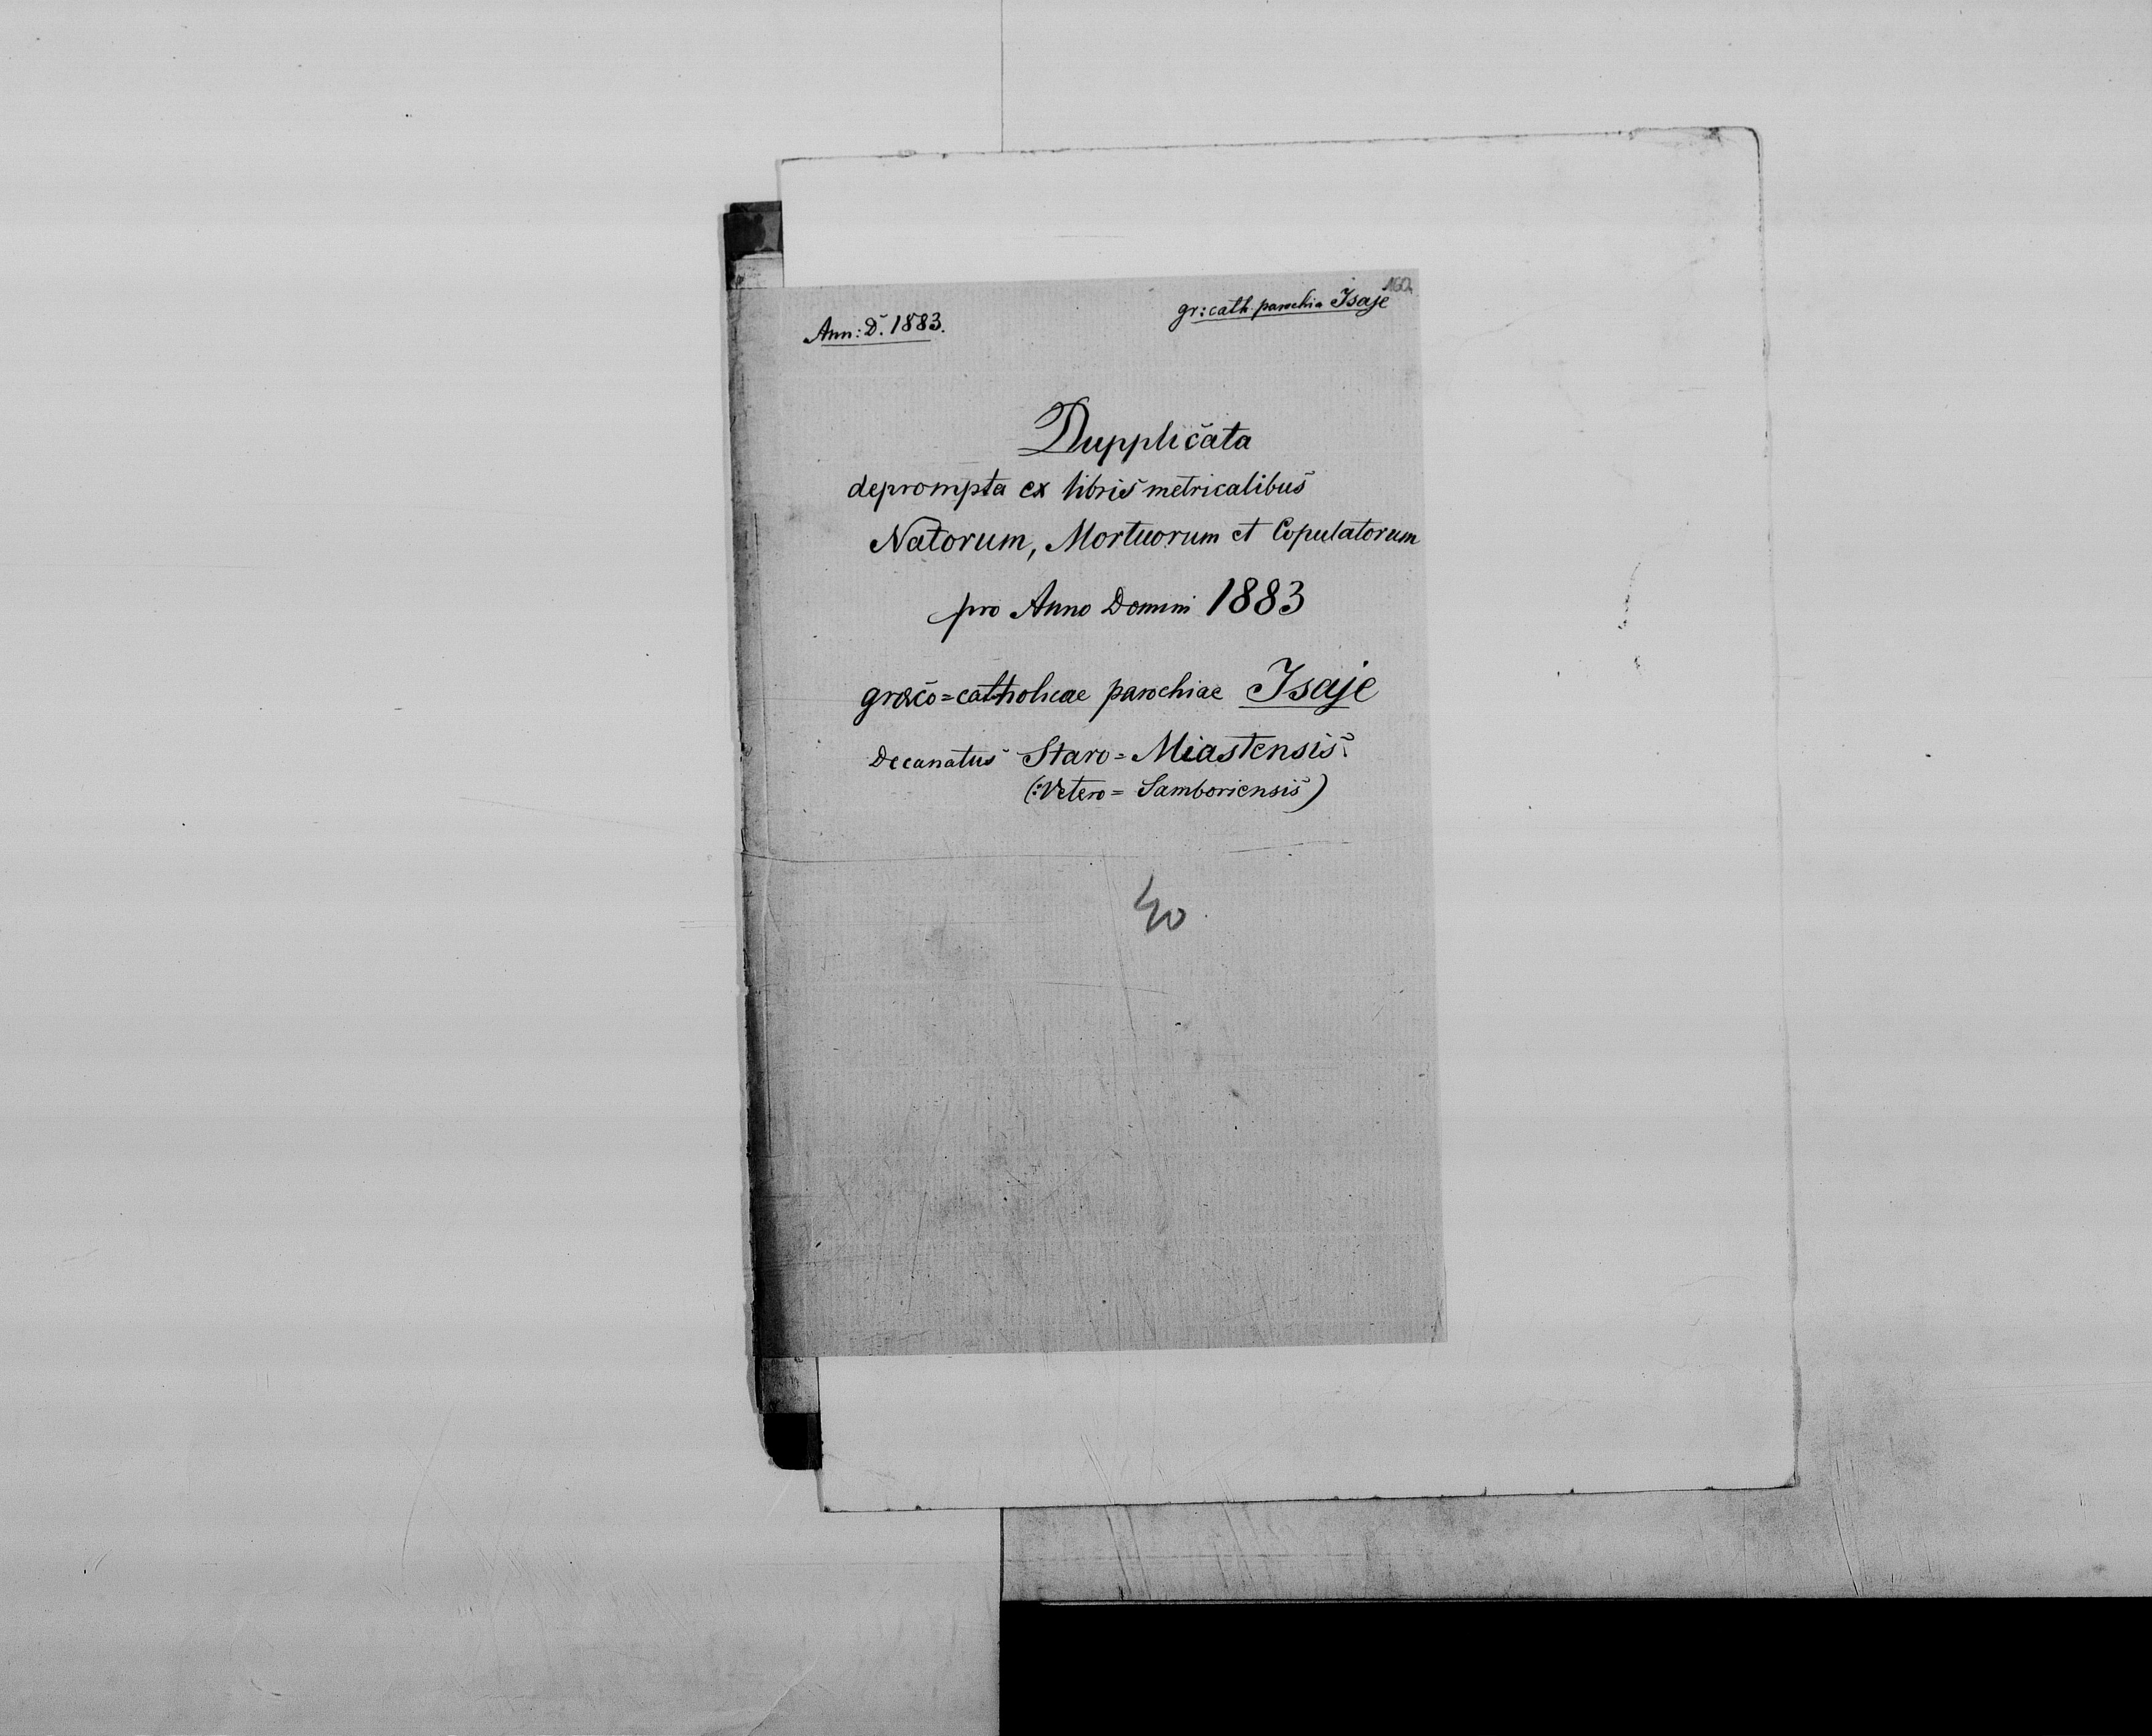 160
gr: cath. parochia Isaje
Ann: D. 1883.
Dupplicata
deprompta ex libris metricalibus
Natorum, Mortuorum et Copulatorum
pro Anno Domini 1883
graeco=catholicae parochiae Isaje
Decanatus Staro=Miastensis.
(:Vetero=Samboriensis)
40